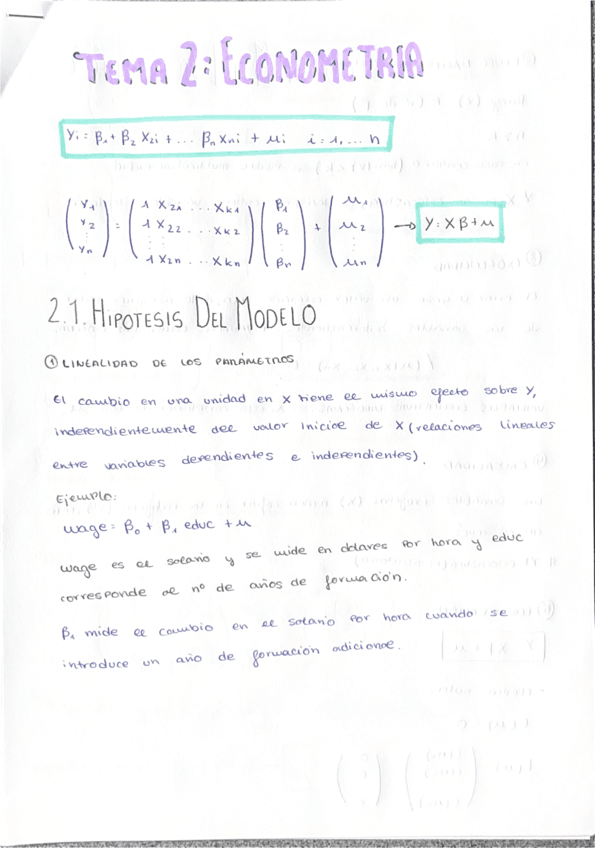 TEMA 2: ECONOMETRIA
Yi = β1 + β2 X2i + ... βn Xni + μi i = 1, ... n
(Y1 Y2 ⋮ Yn) = (1 X21 ... Xk1 1 X22 ... Xk2 ⋮ 1 X2n ... Xkn) (β1 β2 ⋮ βn) + (μ1 μ2 ⋮ μn) → Y = Xβ + μ
2.1. HIPOTESIS DEL MODELO
① LINEALIDAD DE LOS PARÁMETROS
El cambio en una unidad en X tiene el mismo efecto sobre Y,
independientemente del valor inicial de X (relaciones lineales
entre variables dependientes e independientes).
Ejemplo:
wage = β0 + β1 educ + μ
wage es el salario y se mide en dólares por hora y educ
corresponde al nº de años de formación.
β1 mide el cambio en el salario por hora cuando se
introduce un año de formación adicional.